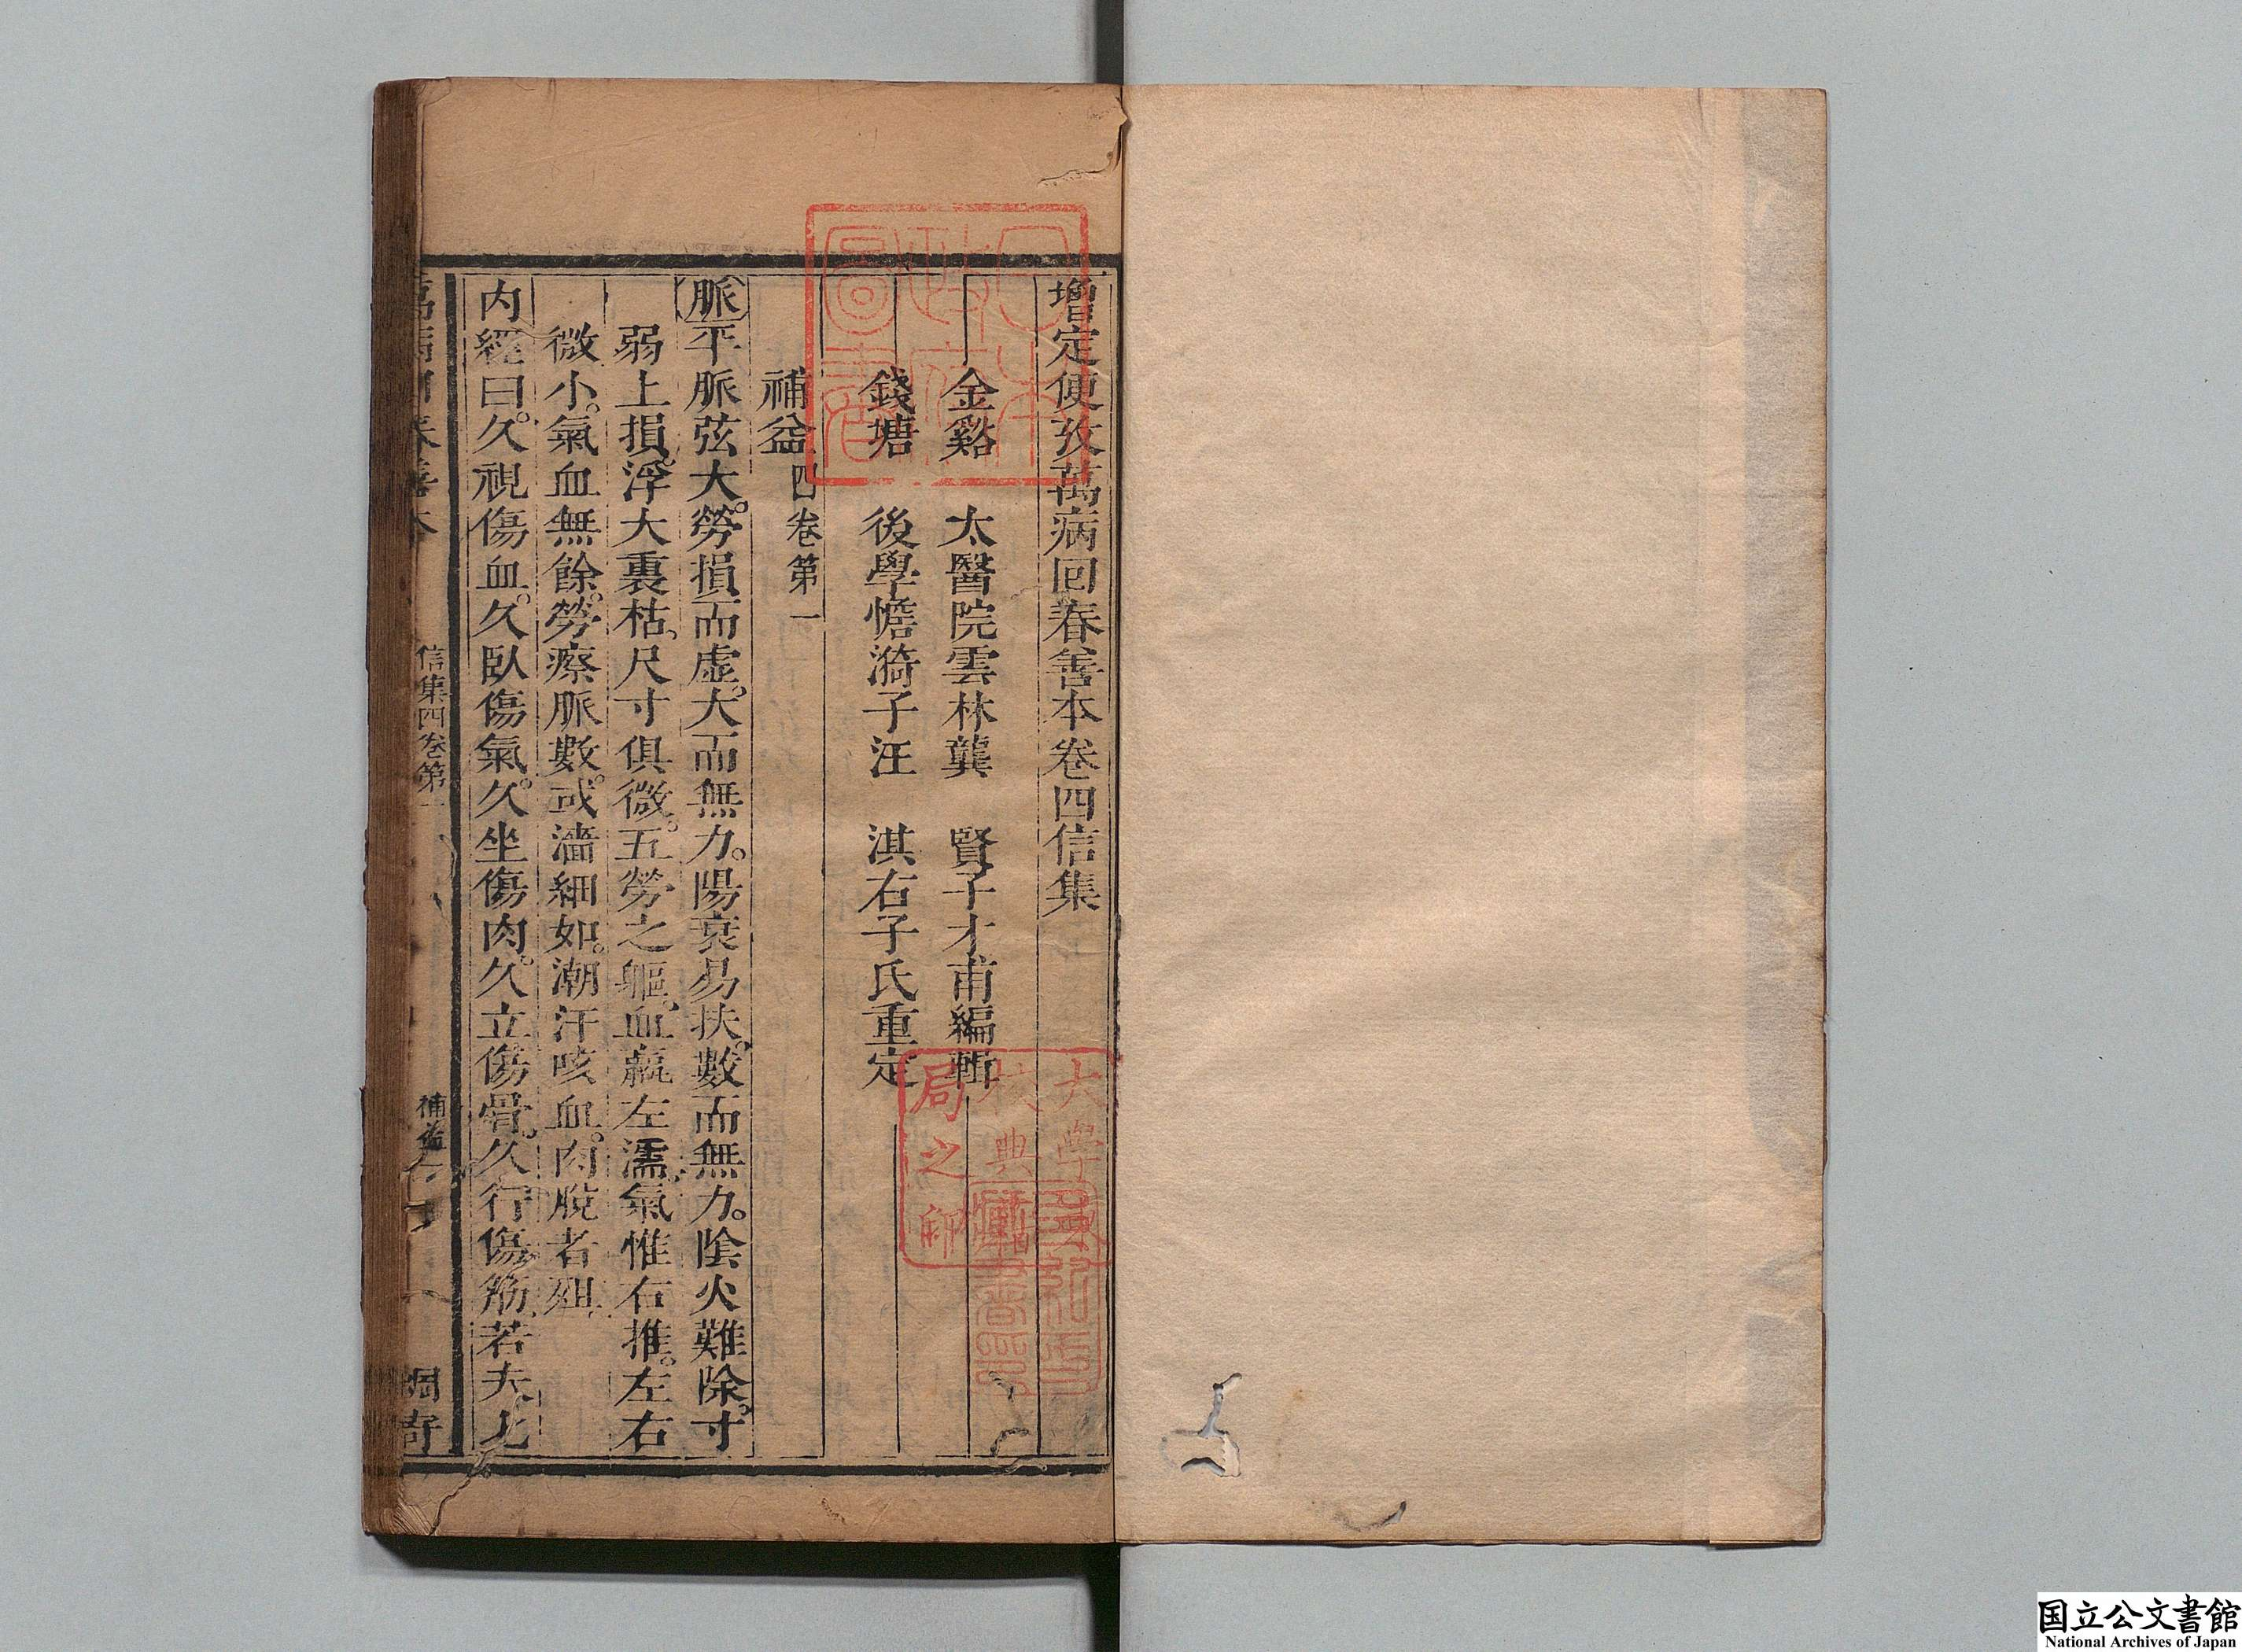 增定便攷萬病回春善本卷四信集
金谿 太醫院雲林龔 賢子才甫編輯
錢塘 後學憺漪子汪 淇右子氏重定
補益 四卷第一
脈平脈弦大。勞損而虛。大而無力。陽衰易扶。數而無力。陰火難除。寸
弱上損。浮大裏枯。尺寸俱微。五勞之軀。血羸左濡。氣惟右推。左右
微小。氣血無餘。勞瘵脈數。或濇細如。潮汗咳血。肉脫者殂
內經曰。久視傷血。久臥傷氣。久坐傷肉。久立傷骨。久行傷筋。若夫七
信集四卷第一
補益
日本政府圖書
大學
典
局之印
国立公文書館
National Archives of Japan